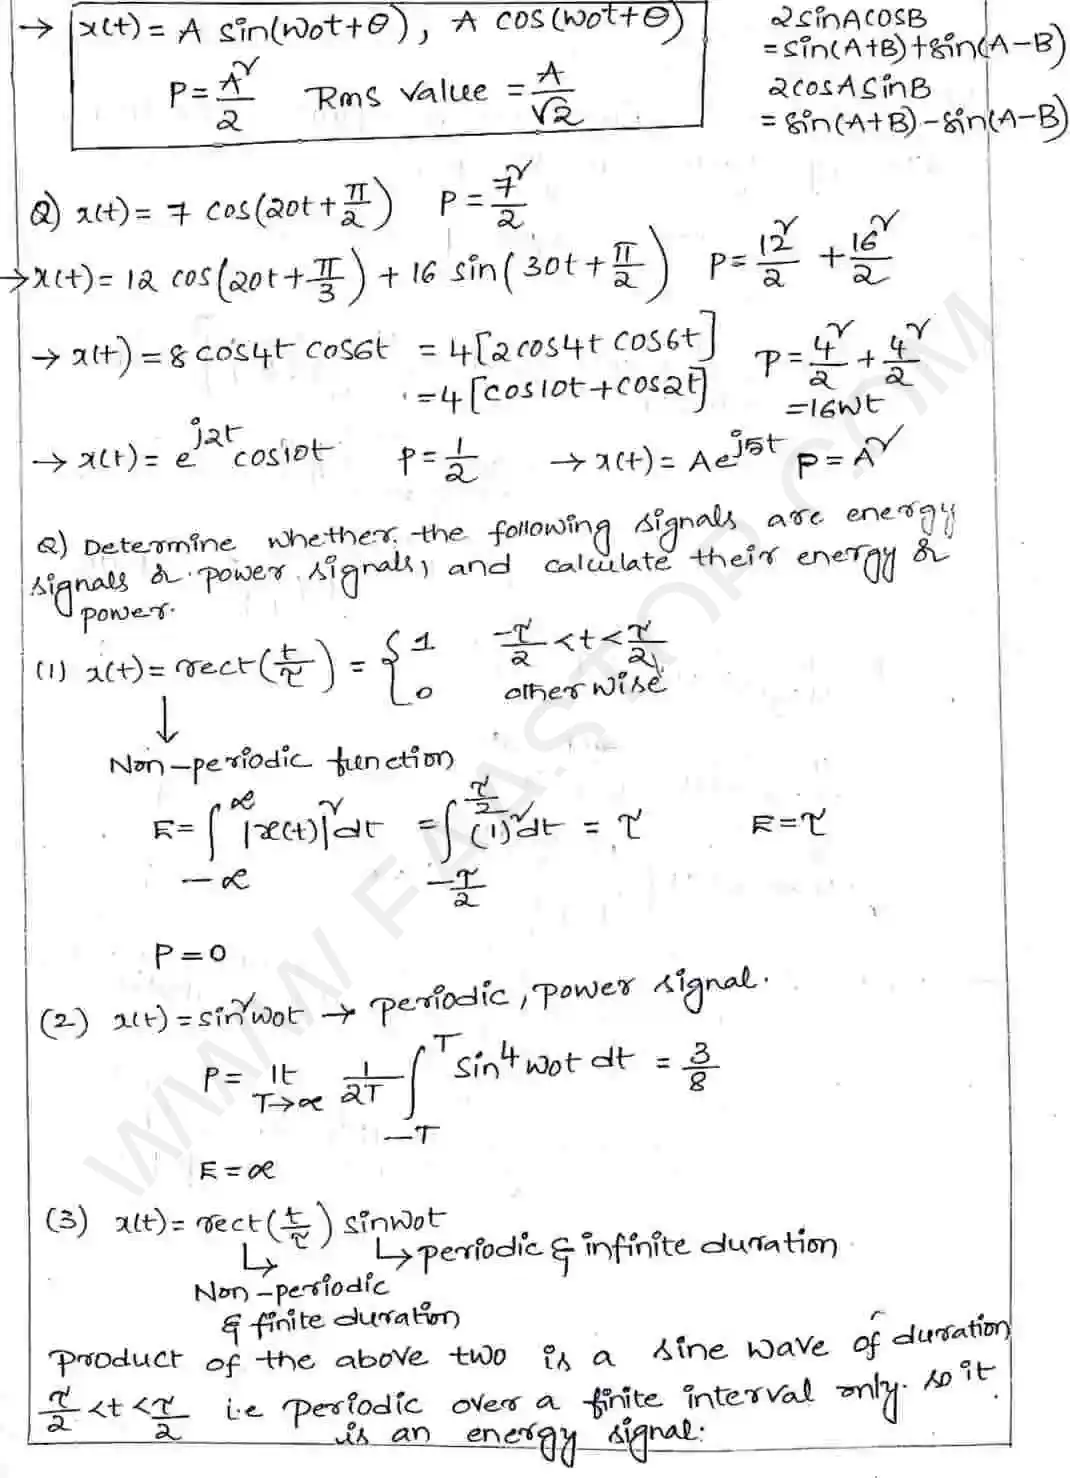 → x(t) = A sin(ω0t+θ), A cos(ω0t+θ)
P = A²/2 Rms value = A/√2
2sinAcosB
= sin(A+B)+sin(A-B)
2cosAsinB
= sin(A+B)-sin(A-B)
Q) x(t) = 7 cos(20t+π/2) P = 7²/2
→ x(t) = 12 cos(20t+π/3) + 16 sin(30t+π/2) P = 12²/2 + 16²/2
→ x(t) = 8 cos4t cos6t = 4[2cos4t cos6t] P = 4²/2 + 4²/2
= 4[cos10t+cos2t] = 16wt
→ x(t) = e^j2t cos10t P = 1/2 → x(t) = Ae^j5t P = A²
Q) Determine whether the following signals are energy
signals & power signals, and calculate their energy &
power.
(1) x(t) = rect(t/τ) = { 1 -τ/2 <t< τ/2
0 otherwise
↓
Non-periodic function
E = ∫_-∞^∞ |x(t)|² dt = ∫_-τ/2^τ/2 (1)² dt = τ E = τ
P = 0
(2) x(t) = sin²ω0t → periodic, power signal.
P = lt T→∞ 1/2T ∫_-T^T sin⁴ω0t dt = 3/8
E = ∞
(3) x(t) = rect(t/τ) sinω0t
↳ periodic & infinite duration
↳ Non-periodic
& finite duration
product of the above two is a sine wave of duration
τ/2 <t< τ/2 i.e periodic over a finite interval only. so it
is an energy signal.
WWW.FAASTOP.COM